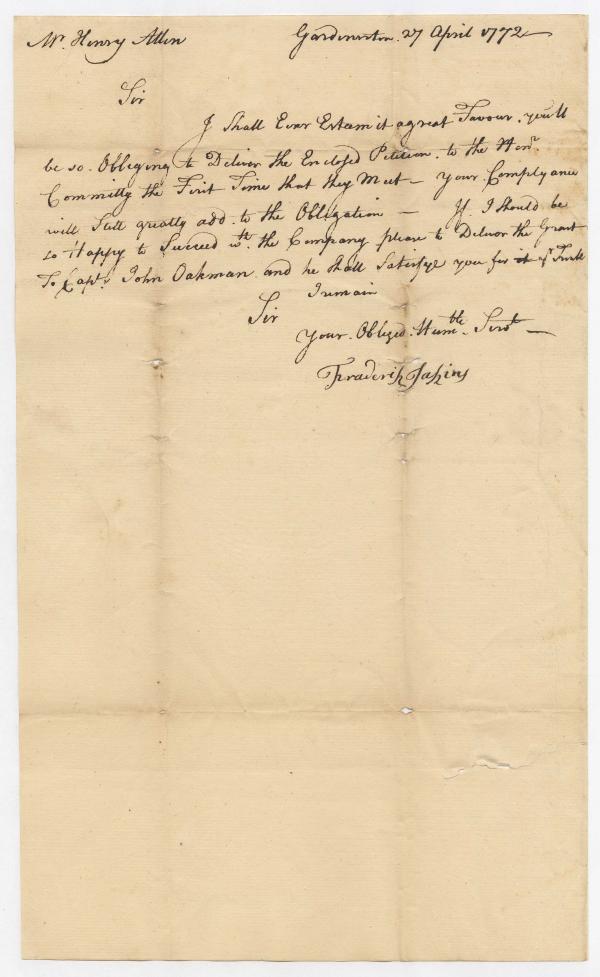 Mr. Henry Allen Gardinerston 27 April 1772
Sir
I Shall Ever Esteem it a great Favour, you'll
be so Obleging to Deliver the Enclosed Petition to the Honr.
Committy the First Time that they Meet - Your Complyance
will Still greatly add to the Obligation - If I Should be
so Happy to Succeed wth. the Company please to Deliver the Grant
To Capt. John Oakman and he Shall Satisfye you for
I remain
Sir
Your Obliged Humble Servt